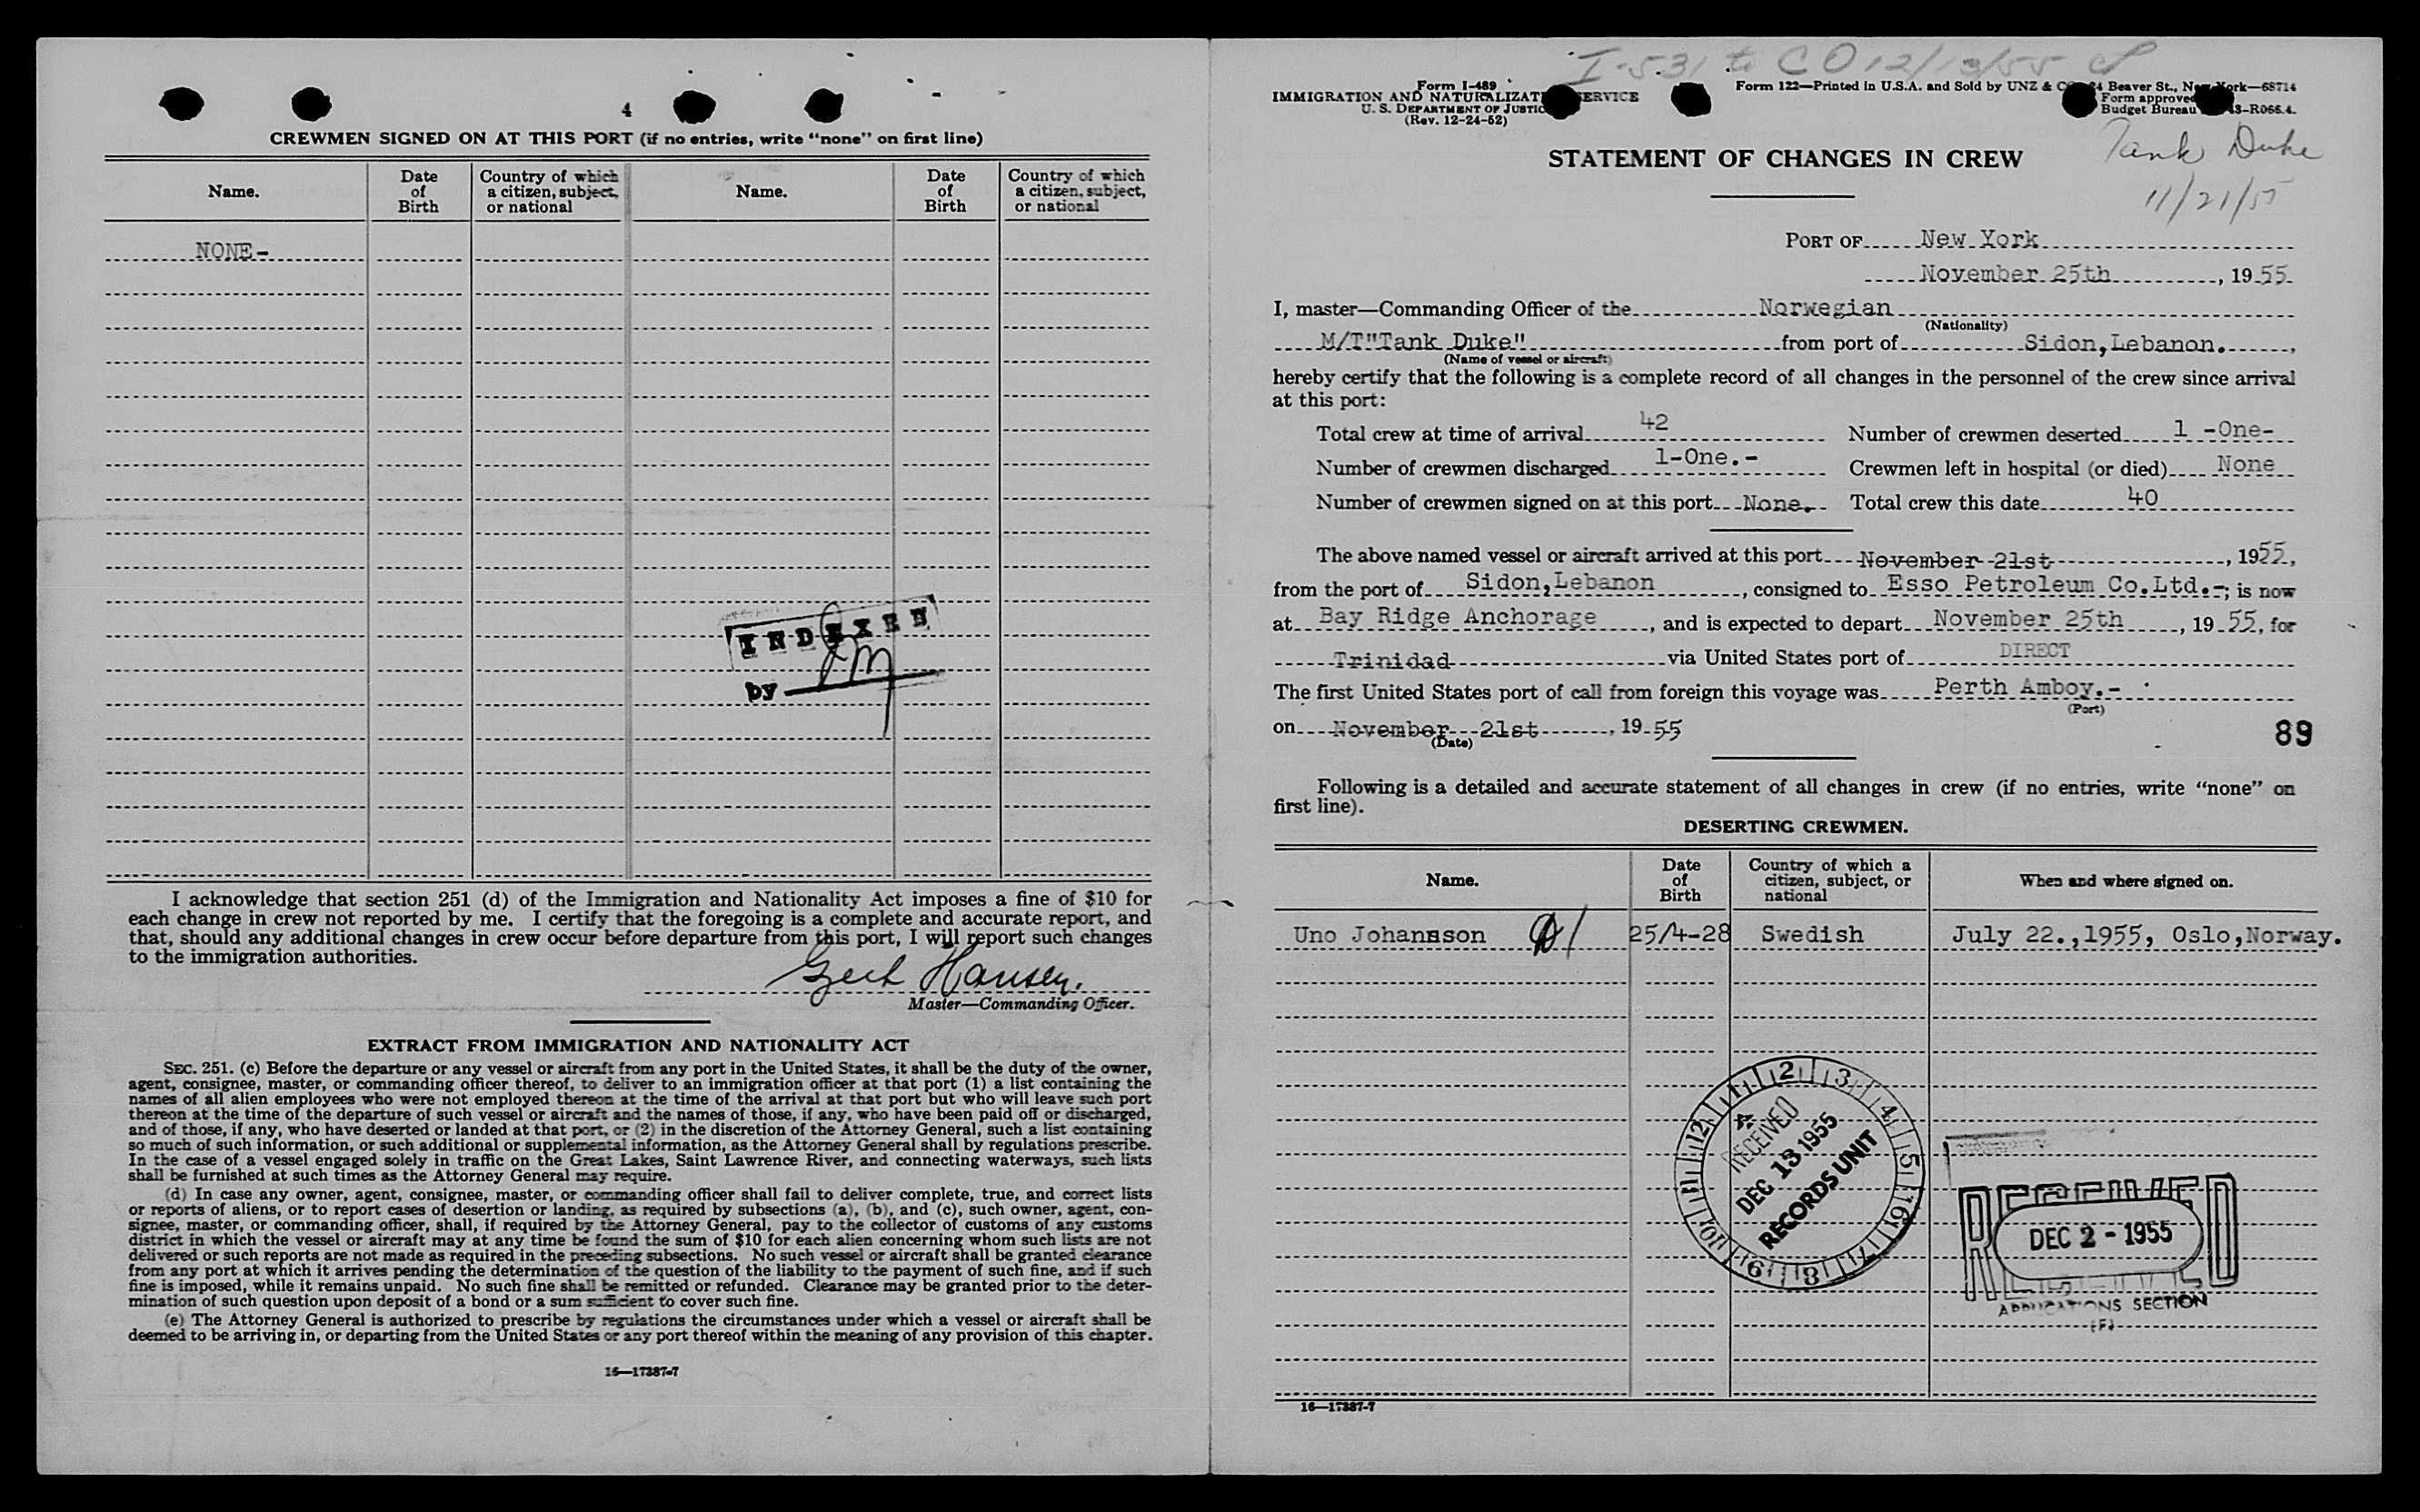 4
CREWMEN SIGNED ON AT THIS PORT (if no entries, write "none" on first line)
Name. Date of Birth Country of which a citizen, subject, or national Name. Date of Birth Country of which a citizen, subject, or national
NONE-
INDEXED
by
I acknowledge that section 251 (d) of the Immigration and Nationality Act imposes a fine of $10 for
each change in crew not reported by me. I certify that the foregoing is a complete and accurate report, and
that, should any additional changes in crew occur before departure from this port, I will report such changes
to the immigration authorities.
Gert Hansen.
Master—Commanding Officer.
EXTRACT FROM IMMIGRATION AND NATIONALITY ACT
SEC. 251. (c) Before the departure or any vessel or aircraft from any port in the United States, it shall be the duty of the owner,
agent, consignee, master, or commanding officer thereof, to deliver to an immigration officer at that port (1) a list containing the
names of all alien employees who were not employed thereon at the time of the arrival at that port but who will leave such port
thereon at the time of the departure of such vessel or aircraft and the names of those, if any, who have been paid off or discharged,
and of those, if any, who have deserted or landed at that port, or (2) in the discretion of the Attorney General, such a list containing
so much of such information, or such additional or supplemental information, as the Attorney General shall by regulations prescribe.
In the case of a vessel engaged solely in traffic on the Great Lakes, Saint Lawrence River, and connecting waterways, such lists
shall be furnished at such times as the Attorney General may require.
(d) In case any owner, agent, consignee, master, or commanding officer shall fail to deliver complete, true, and correct lists
or reports of aliens, or to report cases of desertion or landing, as required by subsections (a), (b), and (c), such owner, agent, con-
signee, master, or commanding officer, shall, if required by the Attorney General, pay to the collector of customs of any customs
district in which the vessel or aircraft may at any time be found the sum of $10 for each alien concerning whom such lists are not
delivered or such reports are not made as required in the preceding subsections. No such vessel or aircraft shall be granted clearance
from any port at which it arrives pending the determination of the question of the liability to the payment of such fine, and if such
fine is imposed, while it remains unpaid. No such fine shall be remitted or refunded. Clearance may be granted prior to the deter-
mination of such question upon deposit of a bond or a sum sufficient to cover such fine.
(e) The Attorney General is authorized to prescribe by regulations the circumstances under which a vessel or aircraft shall be
deemed to be arriving in, or departing from the United States or any port thereof within the meaning of any provision of this chapter.
16—17387-7
I-531 to CO 12/13/55
Form I-489
IMMIGRATION AND NATURALIZAT ERVICE
U. S. DEPARTMENT OF JUSTIC
(Rev. 12-24-52)
Form 122—Printed in U.S.A. and Sold by UNZ & C 4 Beaver St., New York—68714
Form approve
Budget Bureau 43-R066.4.
Tank Duke
11/21/55
STATEMENT OF CHANGES IN CREW
PORT OF New York
November 25th, 1955
I, master—Commanding Officer of the Norwegian
(Nationality)
M/T"Tank Duke" from port of Sidon,Lebanon.,
(Name of vessel or aircraft)
hereby certify that the following is a complete record of all changes in the personnel of the crew since arrival
at this port:
Total crew at time of arrival 42 Number of crewmen deserted 1 -One-
Number of crewmen discharged 1-One.- Crewmen left in hospital (or died) None
Number of crewmen signed on at this port None. Total crew this date 40
The above named vessel or aircraft arrived at this port November 21st, 1955,
from the port of Sidon,Lebanon, consigned to Esso Petroleum Co.Ltd.-; is now
at Bay Ridge Anchorage, and is expected to depart November 25th, 1955, for
Trinidad via United States port of DIRECT
The first United States port of call from foreign this voyage was Perth Amboy.-
(Port)
on November 21st, 1955
(Date)
89
Following is a detailed and accurate statement of all changes in crew (if no entries, write "none" on
first line).
DESERTING CREWMEN.
Name. Date of Birth Country of which a citizen, subject, or national When and where signed on.
Uno Johansson 25/4-28 Swedish July 22.,1955, Oslo,Norway.
12 1 2 3 4 5 6 7 8 9 10 11
RECEIVED
DEC 13 1955
RECORDS UNIT
RECEIVED
DEC 2 - 1955
APPLICATIONS SECTION
(F)
16—17387-7